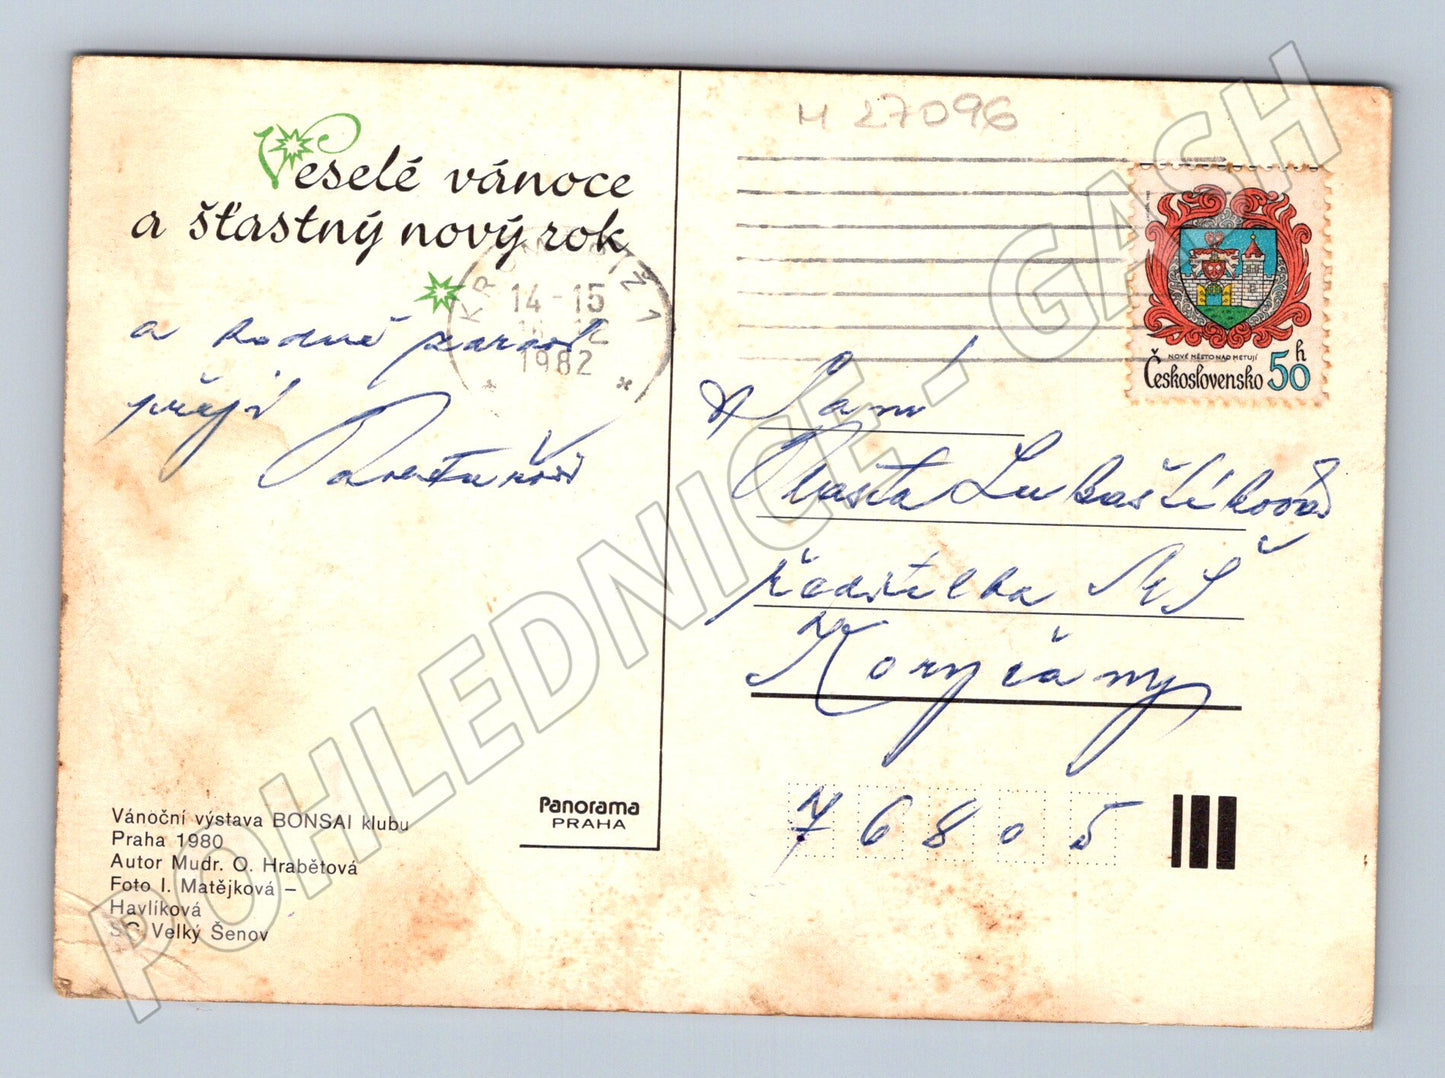 Veselé vánoce
a šťastný nový rok
a hodně zdraví
přejí
Vánoční výstava BONSAI klubu
Praha 1980
Autor Mudr. O. Hrabětová
Foto I. Matějková –
Havlíková
SČ Velký Šenov
Panorama
PRAHA
M 27096
KROMĚŘÍŽ 1
14-15
1982
NOVÉ MĚSTO NAD METUJÍ
Československo 50 h
Vlasta Lukaštíková
ředitelka MŠ
Koryčany
76805
POHLEDNICE - GACH